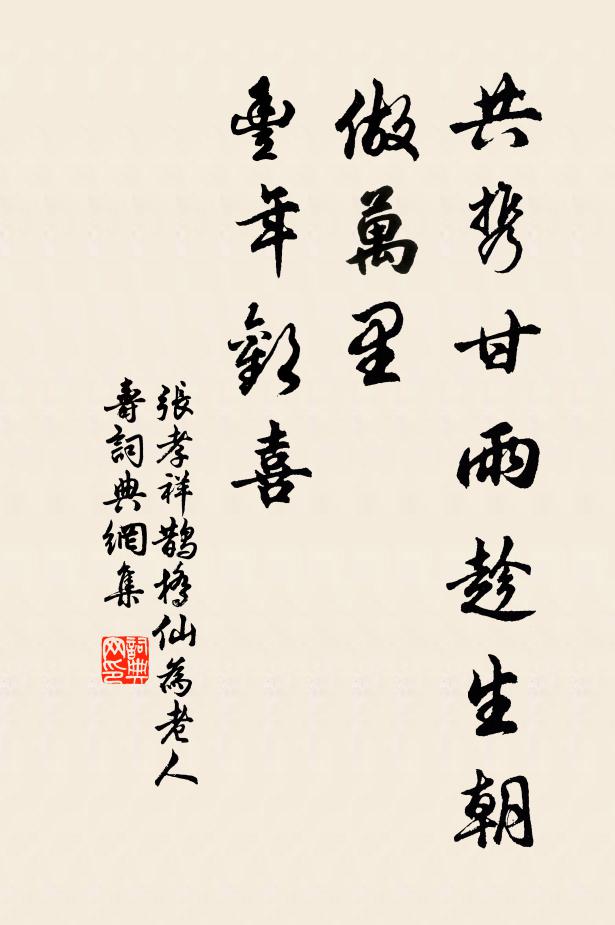 共携甘雨趁生朝
做萬里
豐年歡喜
張孝祥鵲橋仙為老人
壽詞典網集
詞典
网印